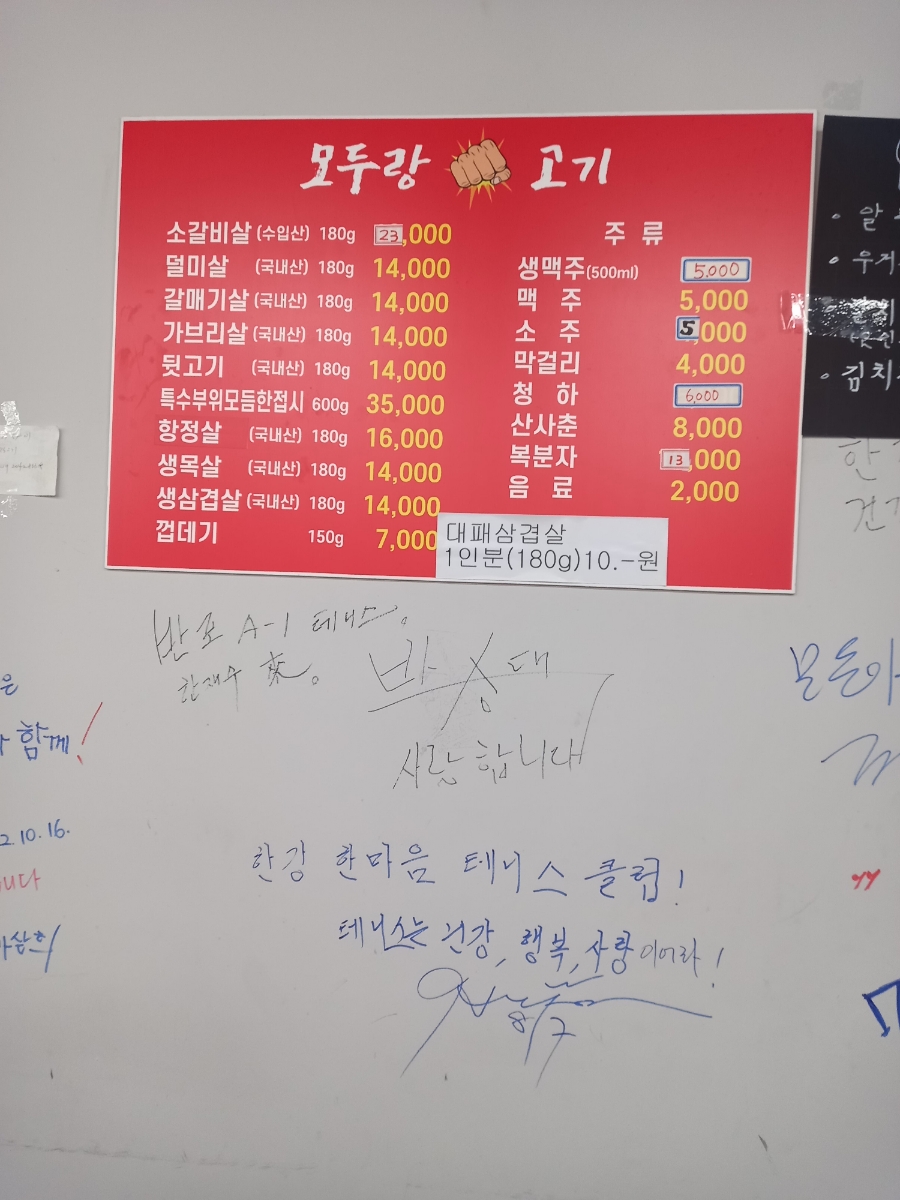 모두랑 고기
소갈비살 (수입산) 180g 23,000
덜미살 (국내산) 180g 14,000
갈매기살 (국내산) 180g 14,000
가브리살 (국내산) 180g 14,000
뒷고기 (국내산) 180g 14,000
특수부위모듬한접시 600g 35,000
항정살 (국내산) 180g 16,000
생목살 (국내산) 180g 14,000
생삼겹살 (국내산) 180g 14,000
껍데기 150g 7,000
주 류
생맥주(500ml) 5,000
맥 주 5,000
소 주 5,000
막걸리 4,000
청 하 6,000
산사춘 8,000
복분자 13,000
음 료 2,000
대패삼겹살
1인분(180g)10.-원
알
우거
김치
한
건
반포 A-1 테니스.
한재수 來.
사랑합니다
은
함께!
2.10.16.
니다
한강 한마음 테니스 클럽!
테니스는 건강, 행복, 사랑이어라!
8/7